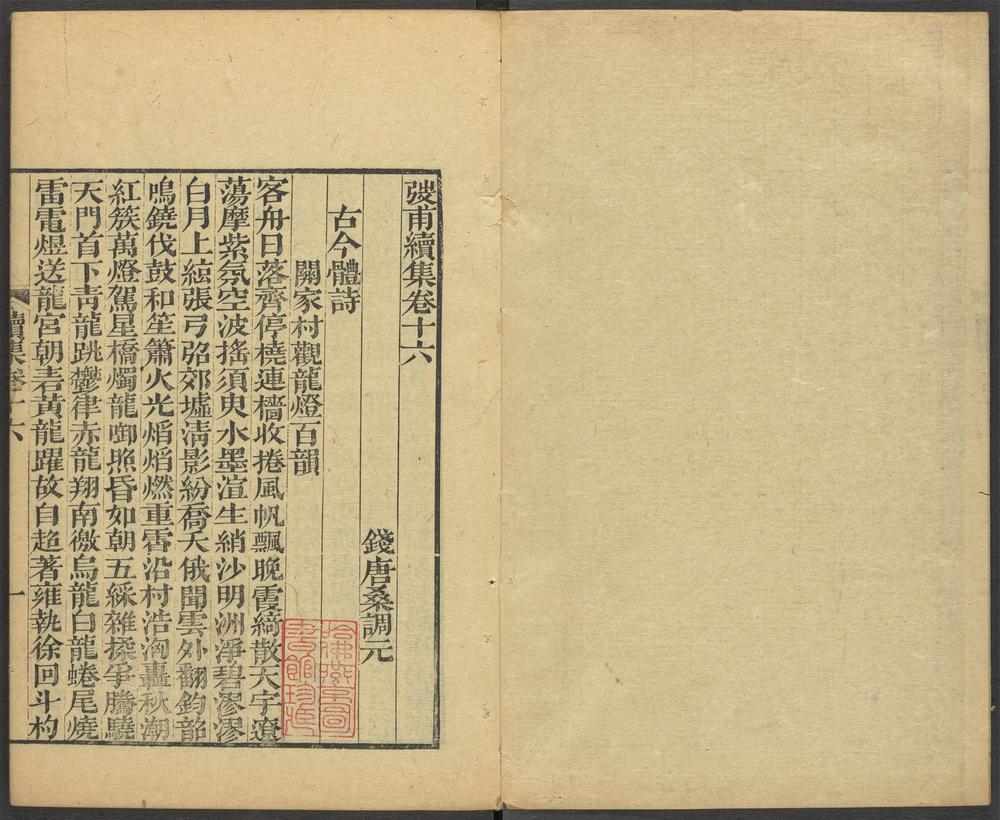 弢甫續集卷十六
錢唐桑調元
古今體詩
關家村觀龍燈百韻
客舟日落齊停橈連檣收捲風帆飄晚霞綺散天宇遼
蕩摩紫氛空波搖須臾水墨渲生綃沙明洲淨碧漻漻
白月上絃張弓弨郊墟淸影紛喬夭俄聞雲外翻鈞韶
鳴鐃伐鼓和笙簫火光熖熖燃重霄沿村浩洶轟秋潮
紅簇萬燈駕星橋燭龍啣㷖昏如朝五綵雜揉爭騰驍
天門首下靑龍跳鬱律赤龍翔南徼烏龍白龍蜷尾燒
雷電煜送龍宮朝君黃龍躍故自超著雍執徐回斗杓
續集卷十六
一